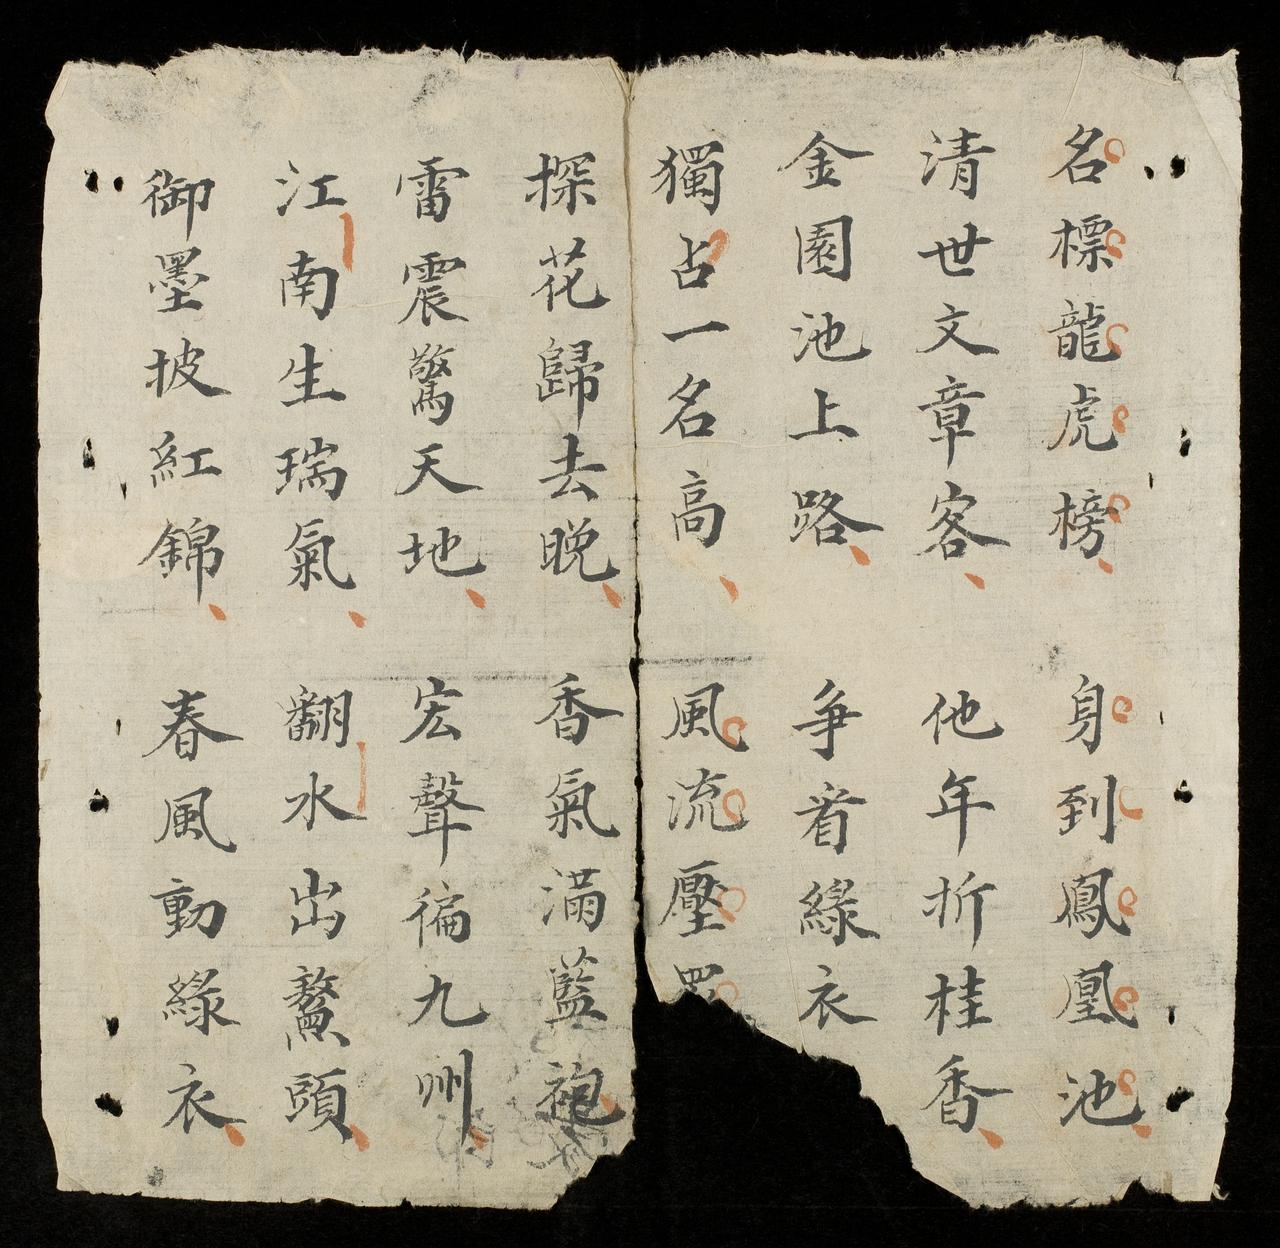 名標龍虎榜 身到鳳凰池
清世文章客 他年折桂香
金園池上路 爭看綠衣
獨占一名高 風流壓
探花歸去晚 香氣滿藍袍
雷震驚天地 宏聲徧九州
江南生瑞氣 翻水出鰲頭
御墨披紅錦 春風動綠衣